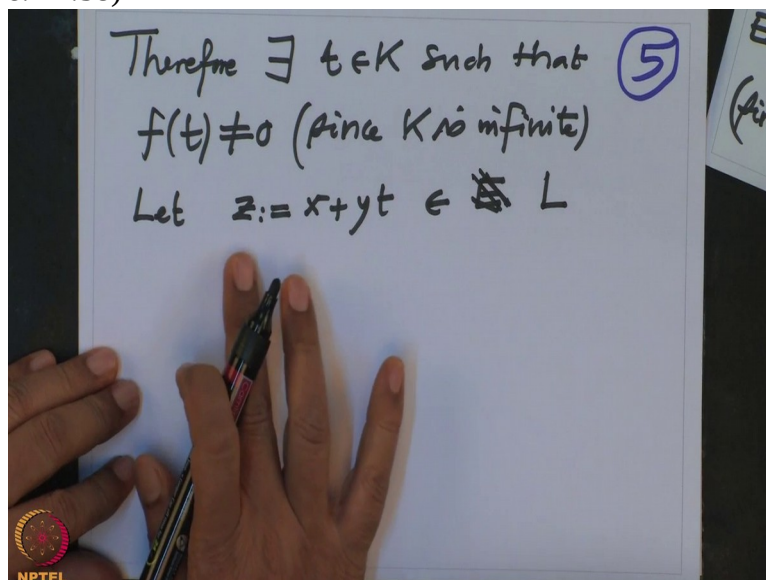 Therefore ∃ t ∈ K such that
5
f(t) ≠ 0 (since K is infinite)
Let z := x + yt ∈ L
NPTEL